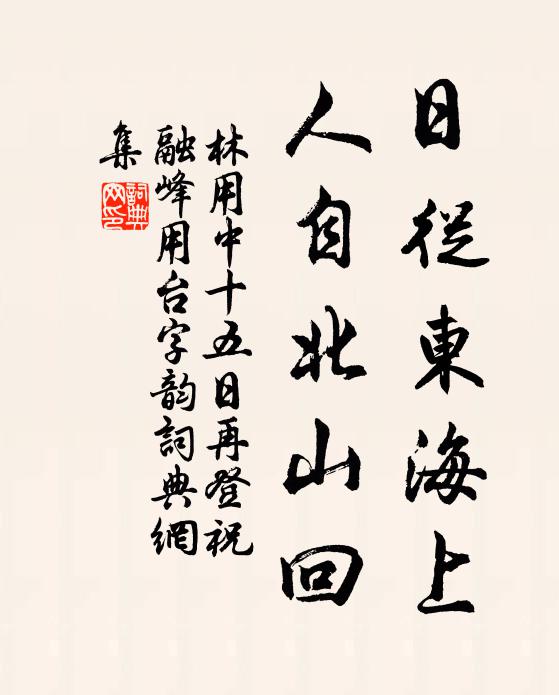 日從東海上
人自北山回
林用中十五日再登祝
融峰用台字韵詞典網
集
詞典
网印